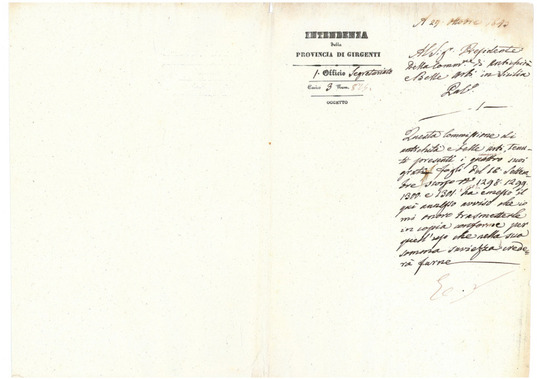 INTENDENZA
della
PROVINCIA DI GIRGENTI
1. Officio Segretariato
Carico 3 Num. 
OGGETTO
A 29 Ottobre
Al Sig.r Presidente
della Comm.ne di Antichità
e Belle Arti in Sicilia
Pal.o
Questa Commissione di
antichità e belle arti, tenu-
ti presenti i quattro suoi
grati fogli del 16 Settem
bre scorso n.i 1298. 1299.
1300 e 1301 ha emesso il
qui annesso avviso che io
mi onoro trasmetterle
in copia conforme per
quell'uso che nella sua
somma saviezza crede-
rà farne